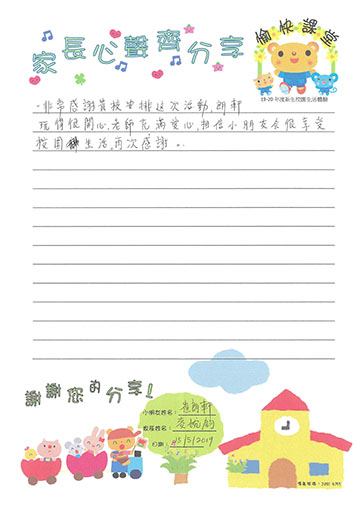 家長心聲齊分享
愉快課堂
19-20 年度新生校園生活體驗
非常感謝貴校安排這次活動,朗軒
玩得很開心,老師充滿愛心,相信小朋友會很享受
校園生活,再次感謝。
謝謝您的分享!
小朋友姓名:
朗軒
家長姓名:
日期:
25/5/2019